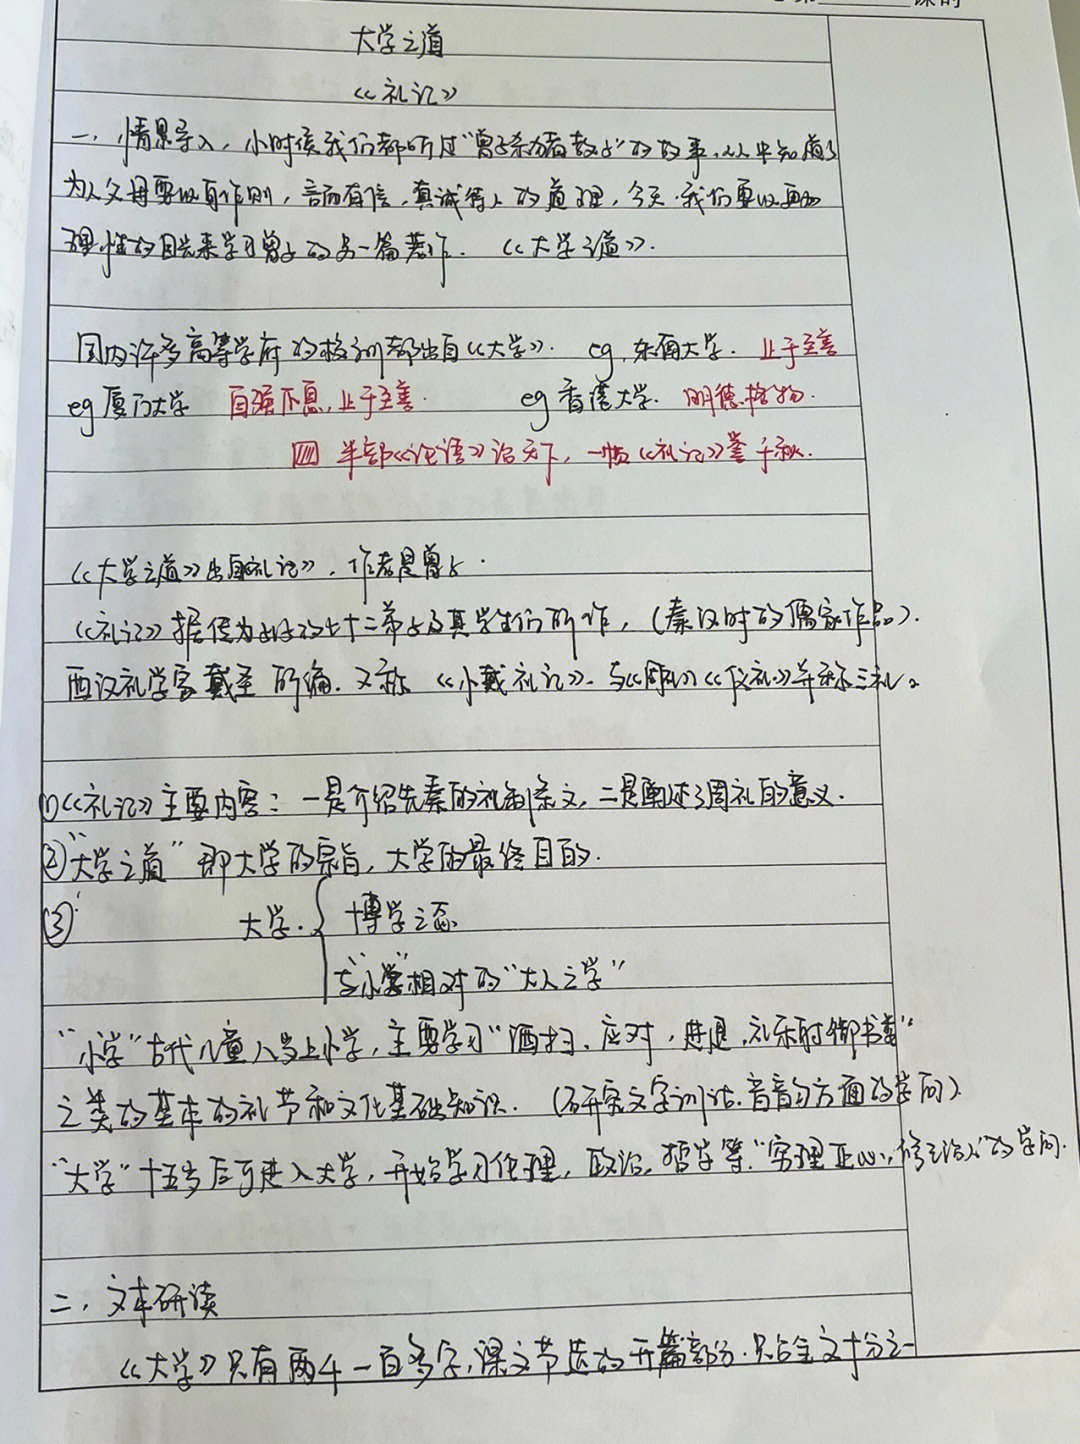 课时
大学之道
《礼记》
一，情景导入，小时候我们都听过“曾子杀猪教子”的故事，从中知道了
为人父母要以身作则，言而有信，真诚待人的道理，今天，我们要以更加
理性的目光来学习曾子的另一篇著作．《大学之道》．
国内许多高等学府的校训都出自《大学》． eg，东南大学．止于至善
eg 厦门大学 自强不息，止于至善． eg 香港大学．明德格物．
半部《论语》治天下，一帙《礼记》鉴千秋．
《大学之道》出自《礼记》，作者是曾子．
《礼记》据传为孔子的七十二弟子及其学生们所作，（秦汉时的儒家作品）．
西汉礼学家戴圣所编．又称《小戴礼记》．与《周礼》《仪礼》并称三礼。
①《礼记》主要内容：一是介绍先秦的礼制条文，二是阐述周礼的意义．
②“大学之道”即大学的宗旨，大学的最终目的．
③ 大学．{ 博学之
与“小学”相对的“大人之学”
“小学”古代儿童八岁上小学，主要学习“洒扫，应对，进退，礼乐射御书数”
之类的基本的礼节和文化基础知识．（研究文字训诂，音韵方面的学问）．
“大学”十五岁后可进入大学，开始学习伦理，政治，哲学等“穷理正心，修己治人”的学问．
二，文本研读
《大学》只有两千一百多字，课文节选的开篇部分．只占全文十分之一